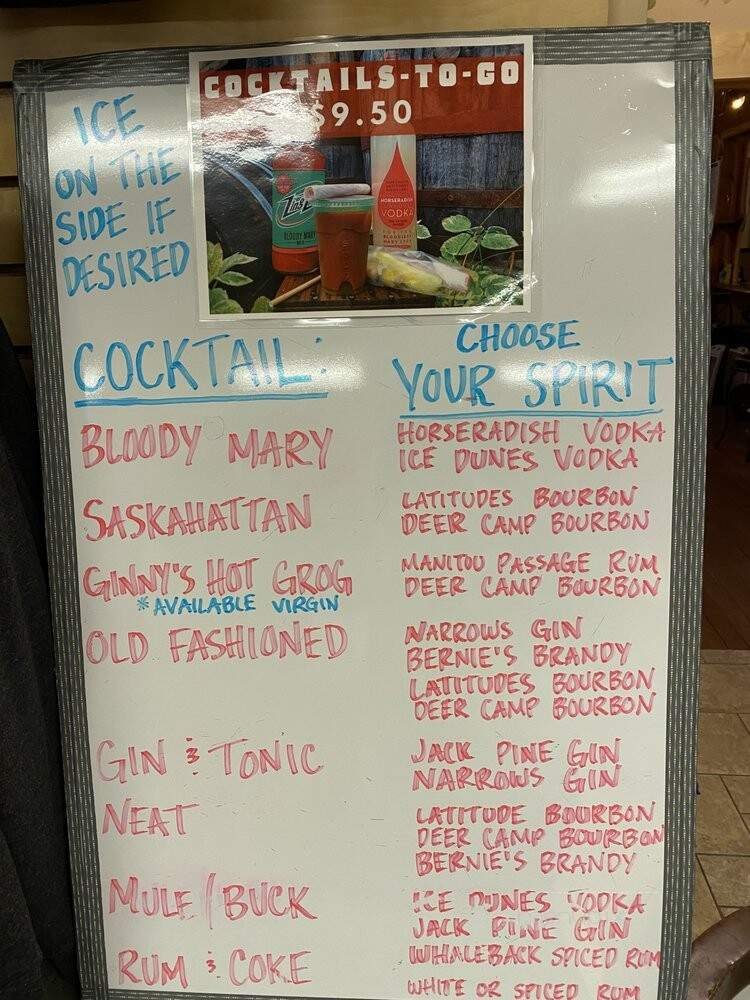 COCKTAILS-TO-GO
$9.50
ICE
ON THE
SIDE IF
DESIRED
BLOODY MARY
HORSERADISH
VODKA
COCKTAIL:
CHOOSE
YOUR SPIRIT
BLOODY MARY
HORSERADISH VODKA
ICE DUNES VODKA
SASKAHATTAN
LATITUDES BOURBON
DEER CAMP BOURBON
GINNY'S HOT GROG
*AVAILABLE VIRGIN
MANITOU PASSAGE RUM
DEER CAMP BOURBON
OLD FASHIONED
NARROWS GIN
BERNIE'S BRANDY
LATITUDES BOURBON
DEER CAMP BOURBON
GIN & TONIC
JACK PINE GIN
NARROWS GIN
NEAT
LATITUDE BOURBON
DEER CAMP BOURBON
BERNIE'S BRANDY
MULE/BUCK
ICE DUNES VODKA
JACK PINE GIN
WHALEBACK SPICED RUM
RUM & COKE
WHITE OR SPICED RUM